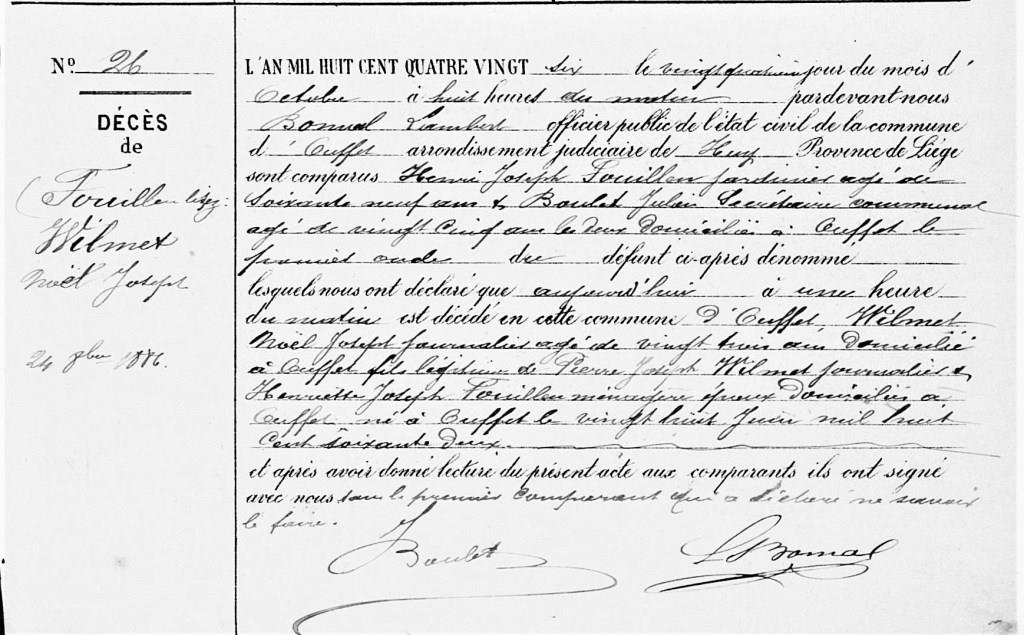 N° 26
DÉCÈS
de
(Fouillen lisez:
Wilmet
Noël Joseph
24 8bre 1886.
L'AN MIL HUIT CENT QUATRE VINGT six le vingt quatrième jour du mois d'
Octobre à huit heures du matin pardevant nous
Bomal Lambert officier public de l'état civil de la commune
d' Ouffet arrondissement judiciaire de Huy Province de Liége
sont comparus Henri Joseph Fouillen jardinier agé de
soixante neuf ans & Boulet Julien Secrétaire communal
agé de vingt cinq ans les deux domiciliés à Ouffet le
premier oncle du défunt ci-après dénommé
lesquels nous ont déclaré que aujourd'hui à une heure
du matin est décédé en cette commune d'Ouffet, Wilmet
Noël Joseph journalier agé de vingt trois ans domicilié
à Ouffet fils légitime de Pierre Joseph Wilmet journalier &
Henriette Joseph Fouillen ménagère époux domiciliés à
Ouffet né à Ouffet le vingt huit Juin mil huit
cent soixante deux.
et après avoir donné lecture du présent acte aux comparants ils ont signé
avec nous sauf le premier comparant qui a déclaré ne savoir
le faire.
Boulet
L Bomal